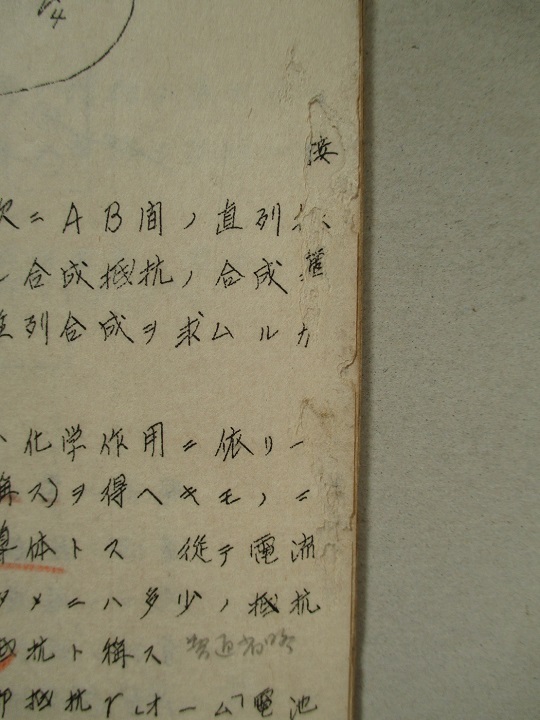 4
接
次ニABノ間ノ直列
合成抵抗ノ合成
列合成ヲ求ムルカ
化学作用ニ依リ一
称ス)ヲ得ヘキモノニ
導体トス 従テ電流
タメニハ多少ノ抵抗
抵抗ト称ス
即抵抗rオーム電池